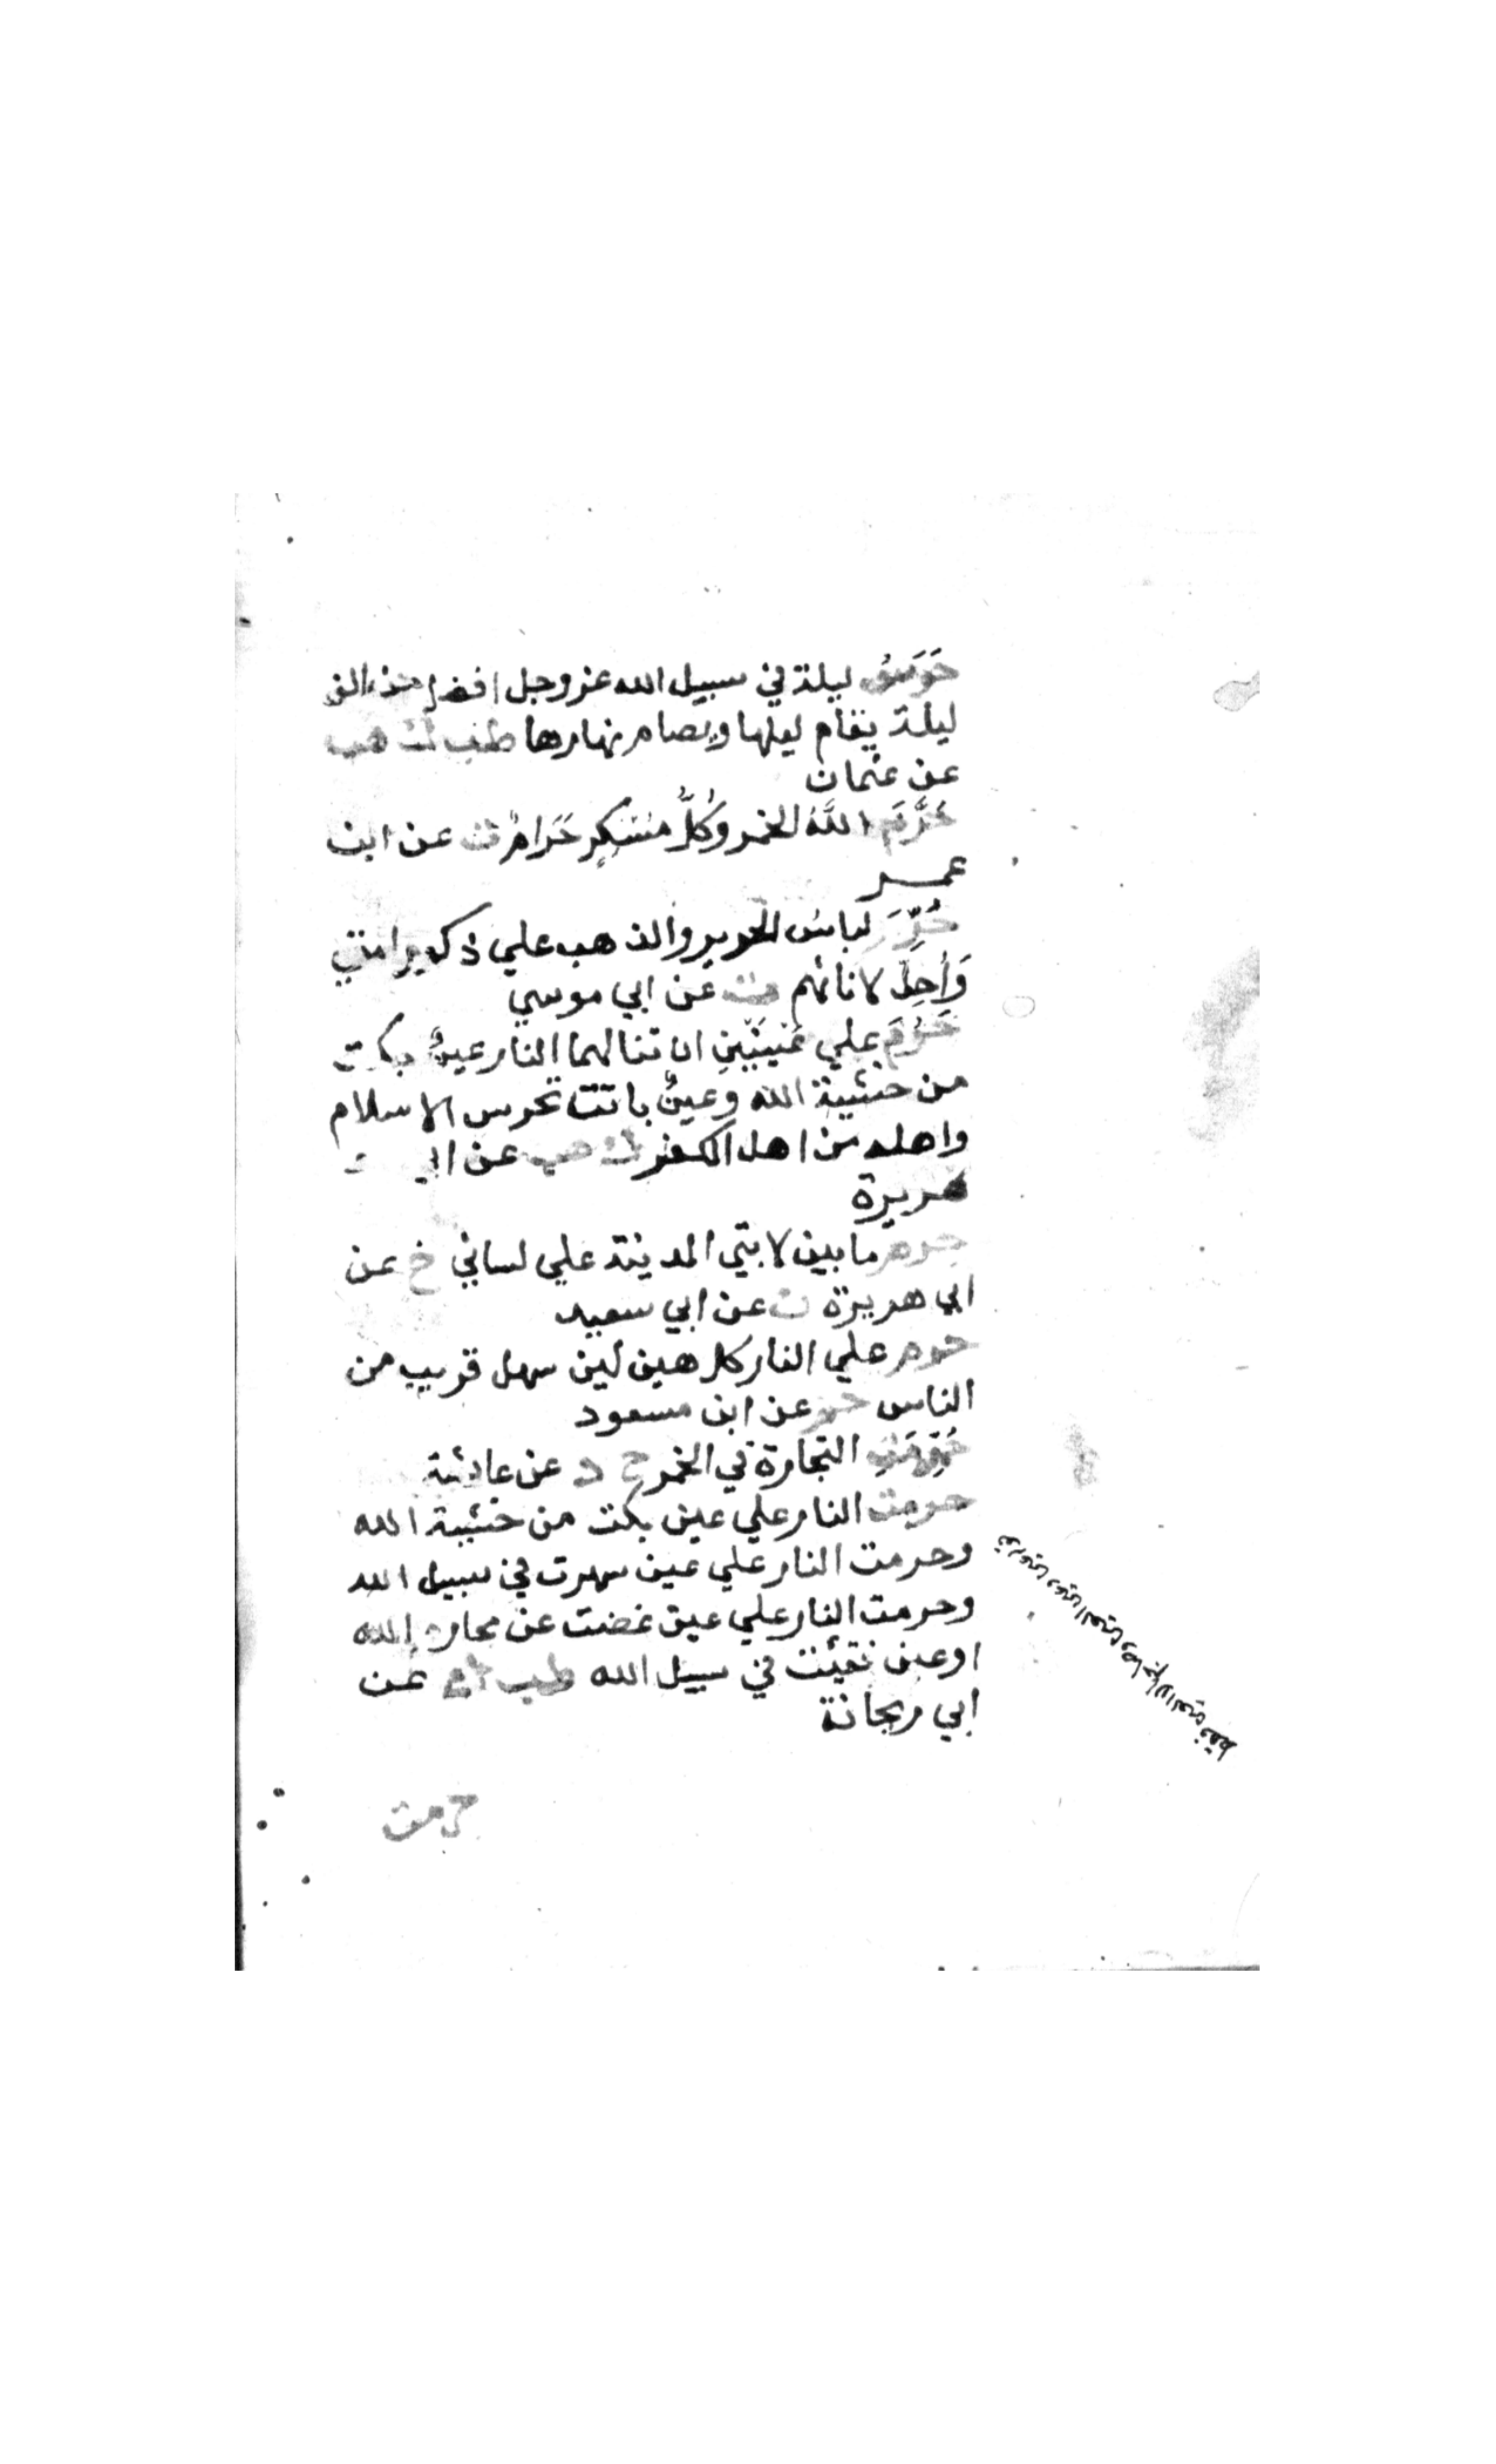 حَرَسُ ليلة في سبيل الله عز وجل افضل من الف
ليلة يقام ليلها ويصام نهارها طب ك هب
عن عثمان
حَرَّمَ اللَّهُ الخمر وكُلُّ مُسْكِرٍ حَرَامٌ ن عن ابن
عمر
حُرِّمَ لباسُ الحرير والذهب علي ذكور امتي
وَأُحِلَّ لاناثهم ت عن ابي موسي
حَرُمَ علي عَيْنَيْنِ ان تنالهما النار عينٌ بكت
من خشية الله وعينٌ باتت تحرس الاسلام
واهله من اهل الكفر ك هب عن ابي
هريرة
حرم ما بين لابتي المدينة علي لساني خ عن
ابي هريرة ن عن ابي سعيد
حرم علي النار كل هين لين سهل قريب من
الناس حم عن ابن مسعود
حُرِّمَتِ التجارة في الخمر خ د عن عائشة
حرمت النار علي عين بكت من خشية الله
وحرمت النار علي عين سهرت في سبيل الله
وحرمت النار علي عين غضت عن محارم الله
او عين فقئت في سبيل الله طب ك عن
ابي ريحانة
حرمت